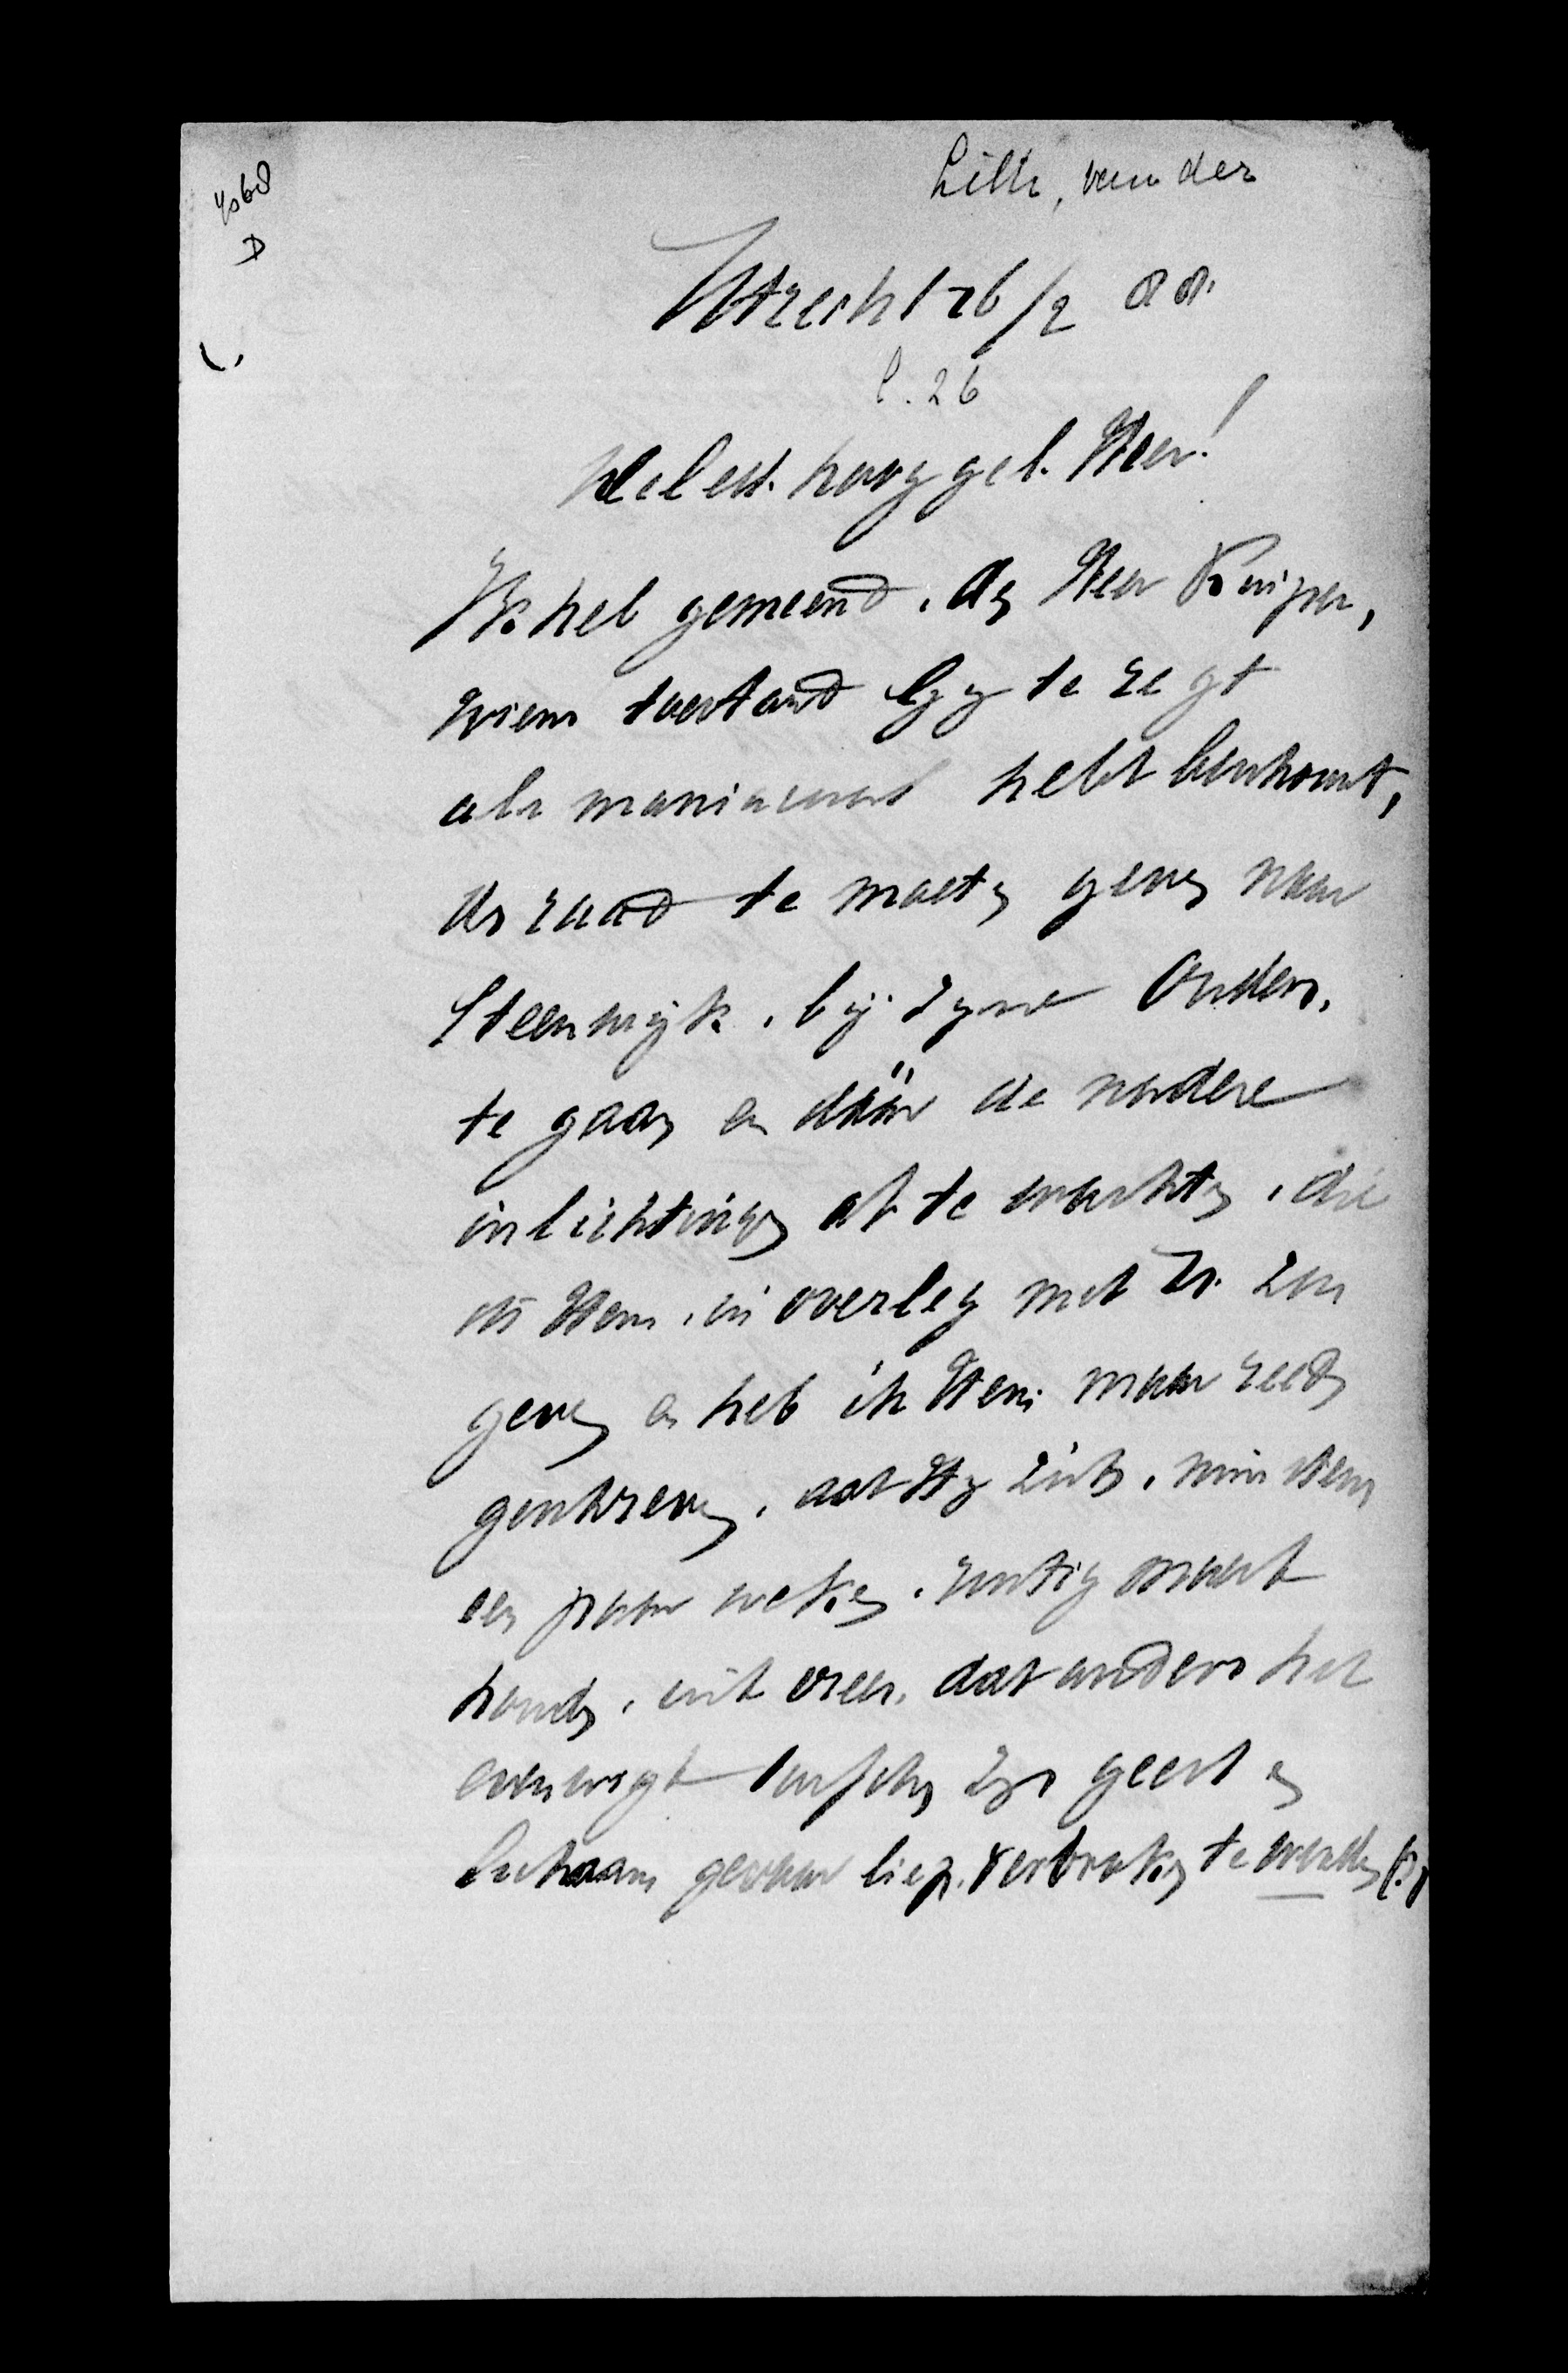 4568
D
Lith, van der
Utrecht 26/2 88.
l. 26
WelEd. hooggel. Heer!
Ik heb gemeend, den Heer Kuiper,
wiens toestand Gij te regt
als maniacaal hebt beschouwd,
den raad te moeten geven naar
Steenwijk, bij zijne Ouders,
te gaan en dáár de nadere
inlichtingen af te wachten, die
ik Hem, in overleg met U. zou
geven en heb ik Hem maar reeds
geschreven, dat Hij zich, minstens
een paar weken, rustig moest
houden, uit vrees, dat anders het
evenwigt tusschen zijn geest en
lichaam gevaar liep, verbroken te worden